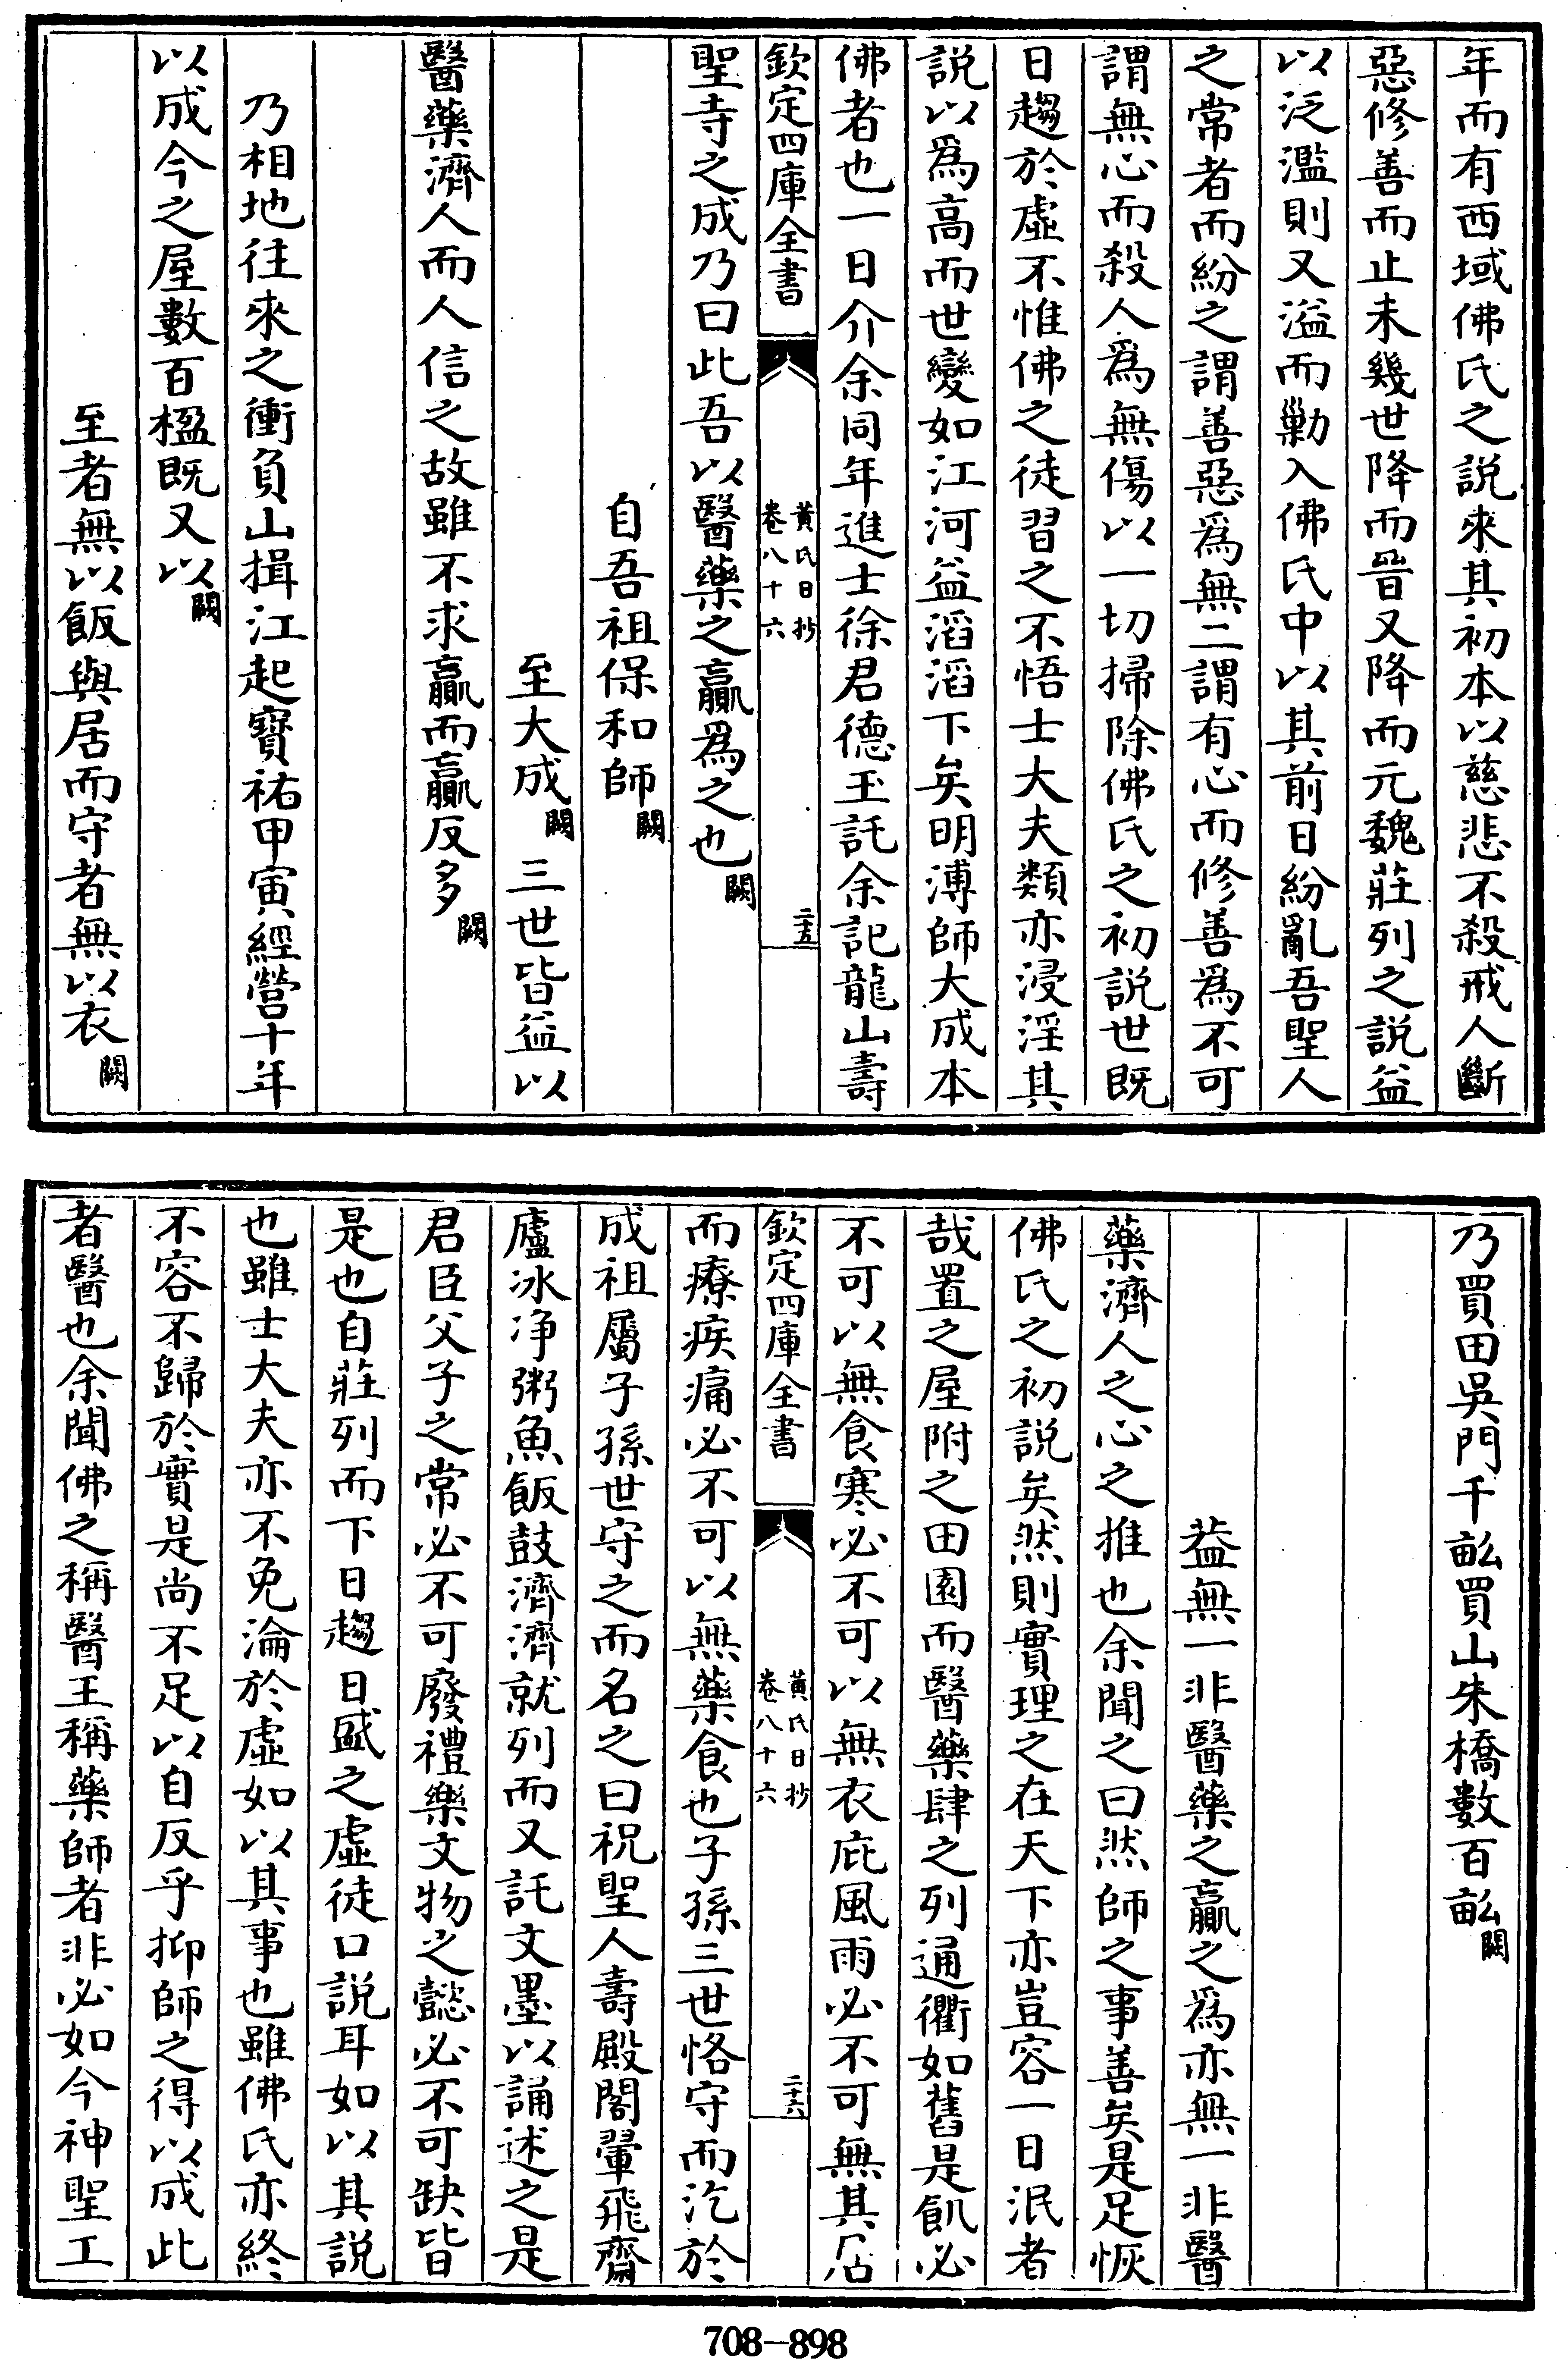 年而有西域佛氏之説來其初本以慈悲不殺戒人斷
惡修善而止未幾世降而晉又降而元魏莊列之説益
以泛濫則又溢而勦入佛氏中以其前日紛亂吾聖人
之常者而紛之謂善惡爲無二謂有心而修善爲不可
謂無心而殺人爲無傷以一切掃除佛氏之初説世既
日趨於虛不惟佛之徒習之不悟士大夫類亦浸淫其
説以爲高而世變如江河益滔滔下矣明溥師大成本
佛者也一日介余同年進士徐君德玉託余記龍山壽
欽定四庫全書
黄氏日抄
卷八十六
二十五
聖寺之成乃曰此吾以醫藥之贏爲之也闕
自吾祖保和師闕
至大成闕 三世皆益以
醫藥濟人而人信之故雖不求贏而贏反多闕
乃相地往來之衝負山揖江起寳祐甲寅經營十年
以成今之屋數百楹既又以闕
至者無以飯與居而守者無以衣闕
乃買田吳門千畝買山朱橋數百畝闕
葢無一非醫藥之贏之爲亦無一非醫
藥濟人之心之推也余聞之曰然師之事善矣是足恢
佛氏之初説矣然則實理之在天下亦豈容一日泯者
哉置之屋附之田園而醫藥肆之列通衢如舊是飢必
不可以無食寒必不可以無衣庇風雨必不可無其居
欽定四庫全書
黄氏日抄
卷八十六
二十六
而療疾痛必不可以無藥食也子孫三世恪守而汔於
成祖屬子孫世守之而名之曰祝聖人壽殿閣翬飛齋
廬冰净粥魚飯鼓濟濟就列而又託文墨以誦述之是
君臣父子之常必不可廢禮樂文物之懿必不可缺皆
是也自莊列而下日趨日盛之虛徒口説耳如以其説
也雖士大夫亦不免淪於虛如以其事也雖佛氏亦終
不容不歸於實是尚不足以自反乎抑師之得以成此
者醫也余聞佛之稱醫王稱藥師者非必如今神聖工
708-898